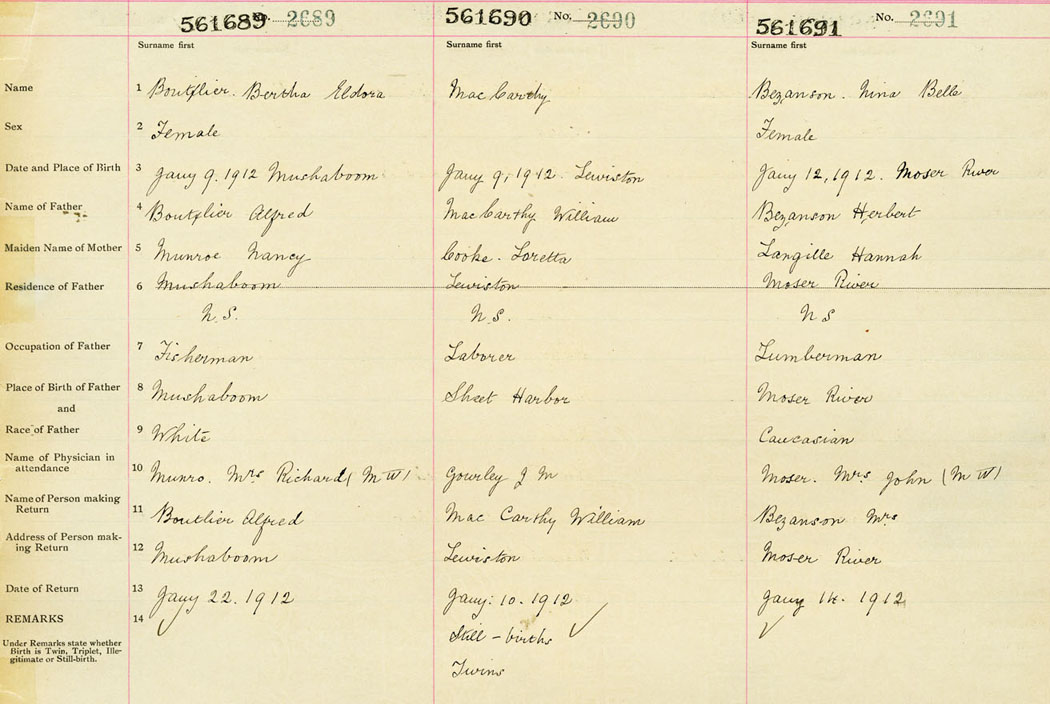 561689 No. 2689 561690 No. 2690 561691 No. 2691
Surname first Surname first Surname first
Name 1 Boutilier. Bertha Eldora MacCarthy Bezanson. Nina Bell
Sex 2 Female Female
Date and Place of Birth 3 Jany 9. 1912 Mushaboom Jany 9, 1912. Lewiston Jany 12, 1912. Moser River
Name of Father 4 Boutilier Alfred MacCarthy William Bezanson Herbert
Maiden Name of Mother 5 Munroe Nancy Cooke. Loretta Langille Hannah
Residence of Father 6 Mushaboom Lewiston Moser River
N.S. N.S. N S
Occupation of Father 7 Fisherman Laborer Lumberman
Place of Birth of Father 8 Mushaboom Sheet Harbor Moser River
and
Race of Father 9 White Caucasian
Name of Physician in
attendance 10 Munro. Mrs Richard (M W) Gourley J M Moser. Mrs John (M W)
Name of Person making
Return 11 Boutlier Alfred Mac Carthy William Bezanson Mrs
Address of Person mak-
ing Return 12 Mushaboom Lewiston Moser River
Date of Return 13 Jany 22. 1912 Jany: 10. 1912 Jany 14. 1912
REMARKS 14 Still-births
Under Remarks state whether
Birth is Twin, Triplet, Ille-
gitimate or Still-birth.
Twins